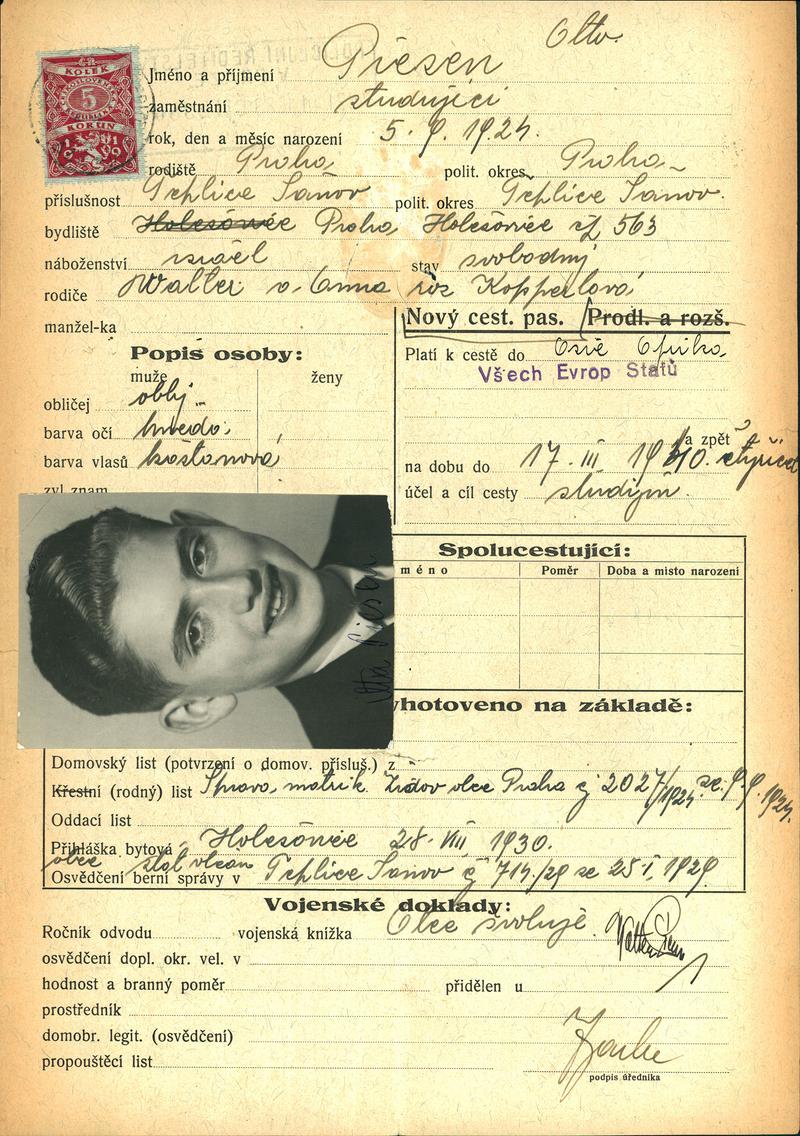 Otto
Jméno a příjmení Piesen
zaměstnání studující
rok, den a měsíc narození 5. 9. 1924.
rodiště Praha polit. okres Praha
příslušnost Teplice Šanov polit. okres Teplice Šanov.
bydliště Holešovice Praha Holešovice 563
náboženství israel stav svobodný
rodiče Walter a Anna roz Kopperlová
manžel-ka
Nový cest. pas. Prodl. a rozš.
Popis osoby:
Platí k cestě do Asie Afrika
Všech Evrop Statů
muže ženy
obličej oblý
barva očí hnědá
barva vlasů kaštanová
a zpět
na dobu do 17. III 1940.
účel a cíl cesty studijní.
zvl znam.
Spolucestující:
méno Poměr Doba a misto narozeni
Otto Piesen
yhotoveno na základě:
Domovský list (potvrzení o domov. přísluš.) z
Křestní (rodný) list Správa matrik Židov obce Praha č 2027/1924 ze 9.9. 1924.
Oddací list
Přihláška bytová Holešovice 28. VIII 1930.
obce stat občan
Osvědčení berní správy v Teplice Šanov č 714/29 ze 25. I. 1929.
Vojenské doklady:
Ročník odvodu vojenská knížka Otec svoluje.
osvědčení dopl. okr. vel. v
hodnost a branný poměr přidělen u
prostředník
domobr. legit. (osvědčení)
propouštěcí list
podpis úředníka
KOLEK
5
KORUN